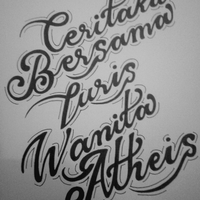 Ceritaku
Bersama
Turis
Wanita
Atheis